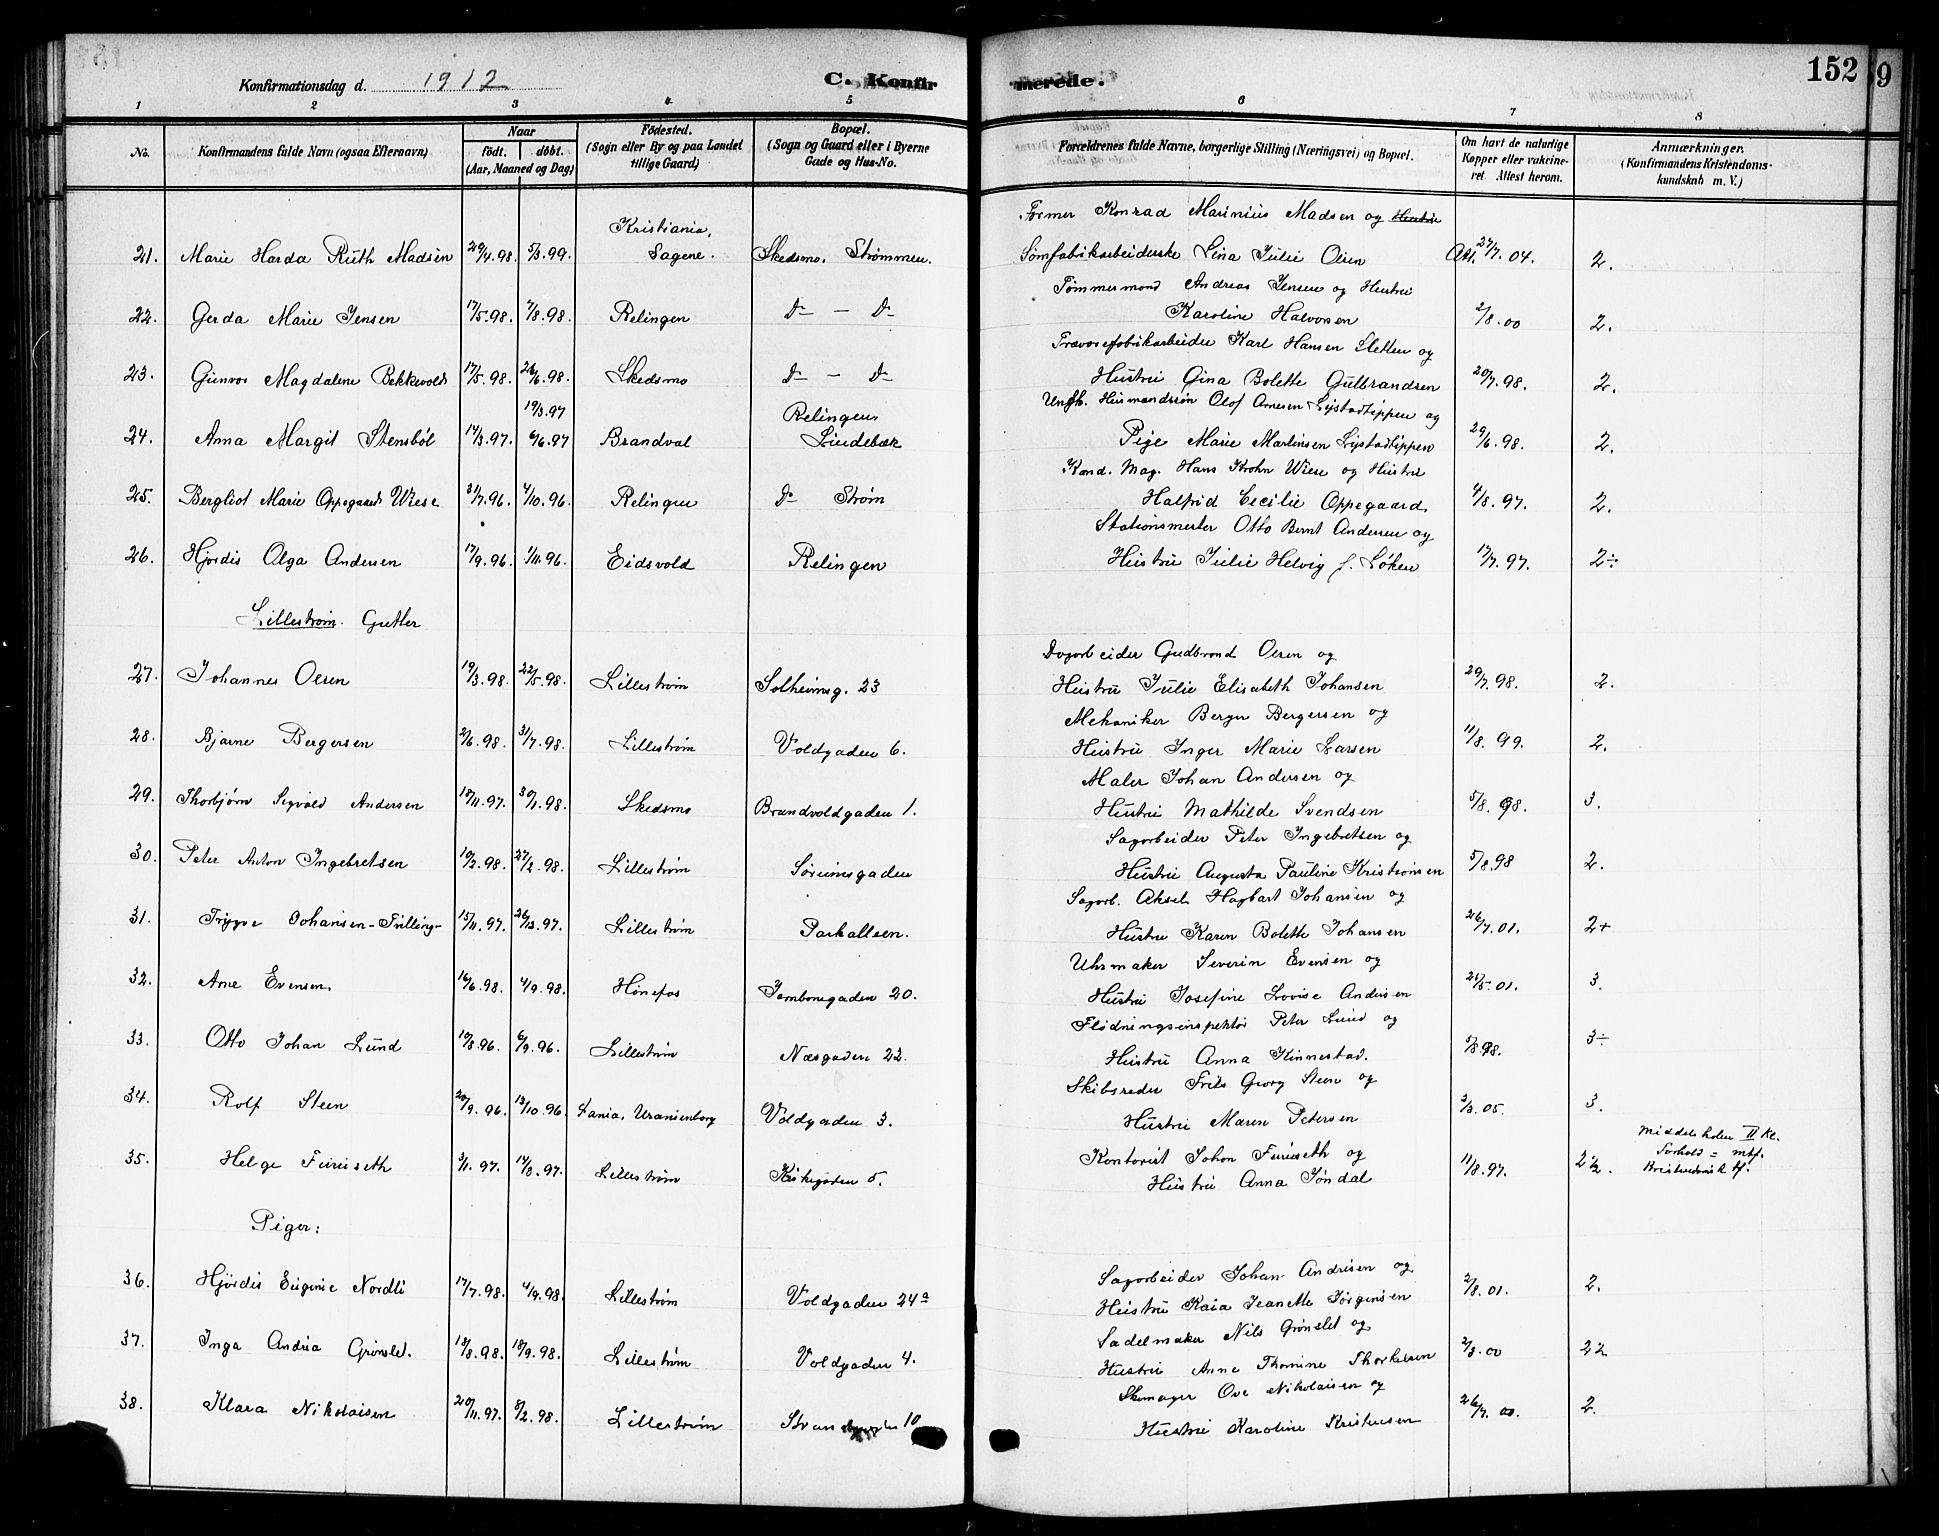 Konfirmationsdag d. 1912 C. Konfirmerede. 152 9
1 2 3 4 5 6 7 8
No. Konfirmandens fulde Navn (ogsaa Efternavn) Naar født. døbt. (Aar, Maaned og Dag) Fødested. (Sogn eller By og paa Landet tillige Gaard) Bopæl. (Sogn og Gaard eller i Byerne Gade og Hus-No. Forældrenes fulde Navne, borgerlige Stilling (Næringsvei) og Bopæl. Om havt de naturlige Kopper eller vakcineret. Attest herom. Anmærkninger. (Konfirmandens Kristendomskundskab m. V.)
Kristiania, Former Konrad Marinius Madsen og Hustru
21. Marie Harda Ruth Madsen 29/4.98. 5/3.99. Sagene. Skedsmo. Strømmen. Sømfabrikarbeiderske Lina Julie Olsen Att. 27/7.04. 2.
Tømmermand Andreas Jensen og Hustru
22. Gerda Marie Jensen 17/5.98. 7/8.98. Relingen Do — Do Karoline Halvorsen 2/8.00 2.
Trævarefabrikarbeider Karl Hansen Sletten og
23. Gunvor Magdalene Bekkevold 17/5.98. 26/6.98. Skedsmo Do — Do Hustru Gina Bolette Gulbrandsen 20/7.98. 2.
19/3.97 Relingen, Ungk. Husmandssøn Olof Arnesen Lystadtippen og
24. Anna Margit Stensbøl 14/3.97. 6/6.97 Brandval Lindebæk Pige Marie Martinsen Lystadtippen 29/6.98. 2.
Kand. Mag. Hans Krohn Wiese og Hustru
25. Bergliot Marie Oppegaard Wiese 31/7.96. 4/10.96. Relingen Do Strøm Halfrid Cecilie Oppegaard, 4/8.97. 2.
Stationsmester Otto Bernt Andersen og
26. Hjørdis Olga Andersen 17/9.96. 1/11.96. Eidsvold Relingen Hustru Julie Helvig f. Løken 17/7.97. 2÷
Lillestrøm. Gutter
Dagarbeider Gudbrand Olsen og
27. Johannes Olsen 19/3.98. 22/5.98. Lillestrøm Solheimsg. 23 Hustru Julie Elisabeth Johansen 29/7.98. 2.
Mekaniker Berger Bergersen og
28. Bjarne Bergersen 2/6.98. 31/7.98. Lillestrøm Voldgaden 6. Hustru Inger Marie Larsen 11/8.99. 2.
Maler Johan Andersen og
29. Thorbjørn Sigvald Andersen 18/11.97. 30/1.98. Skedsmo Brandvoldgaden 1. Hustru Mathilde Svendsen 5/8.98. 3.
Sagarbeider Peter Ingebretsen og
30. Peter Anton Ingebretsen 10/2.98. 27/2.98. Lillestrøm Sørumsgaden Hustru Augusta Pauline Kristiansen 5/8.98 2.
Sagarb. Aksel Hagbart Johansen og
31. Trygve Johansen - Tvilling - 15/11.97. 26/12.97. Lillestrøm Parkalleen. Hustru Karen Bolette Johansen 26/7.01. 2+
Uhrmaker Severin Evensen og
32. Arne Evensen. 16/6.98. 4/9.98. Hønefos Jernbanegaden 20. Hustru Josefine Lovise Andersen 25/5.01. 3.
Flødningsinspektør Peter Lund og
33. Otto Johan Lund 10/8.96. 6/9.96. Lillestrøm Næsgaden 22. Hustru Anna Kinnestad. 5/8.98. 3÷
Skibsreder Frits Georg Steen og
34. Rolf Steen 20/9.96. 18/10.96. Kania, Uranienborg Voldgaden 3. Hustru Maren Petersen 2/3.05. 3.
Middelskolen II Kl.
35. Helge Furuseth 3/1.97. 14/3.97. Lillestrøm Kirkegaden 5. Kontorist Johan Furuseth og Hustru Anna Jøndal 11/8.97. 2½. Forhold = mtf. Kristendomsk tf.
Piger:
Sagarbeider Johan Andersen og
36. Hjørdis Eugenie Nordli 17/7.98. 4/9.98. Lillestrøm Voldgaden 24a Hustru Kaia Jeanette Jørgensen 2/8.01. 2.
Sadelmaker Nils Grønslet og
37. Inga Andrea Grønslet. 13/8.98. 18/9.98. Lillestrøm Voldgaden 4. Hustru Anne Thomine Thorkelsen 2/8.00 22
Skomager Ove Nikolaisen og
38. Klara Nikolaisen 20/11.97. 8/2.98. Lillestrøm 10 Hustru Karoline Kristensen 26/7.00. 2.